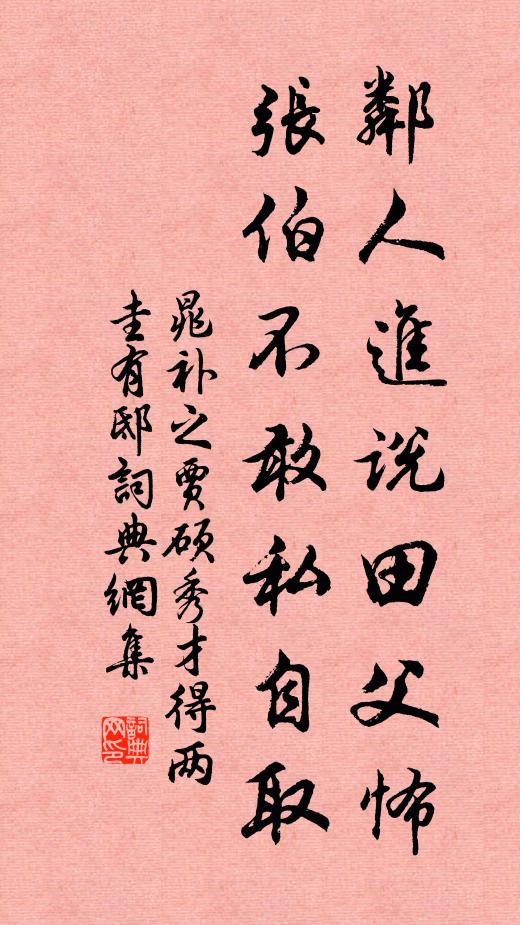 鄰人進説田父怖
張伯不敢私自取
晁补之賈碩秀才得两
圭有邸詞典網集
詞典网印